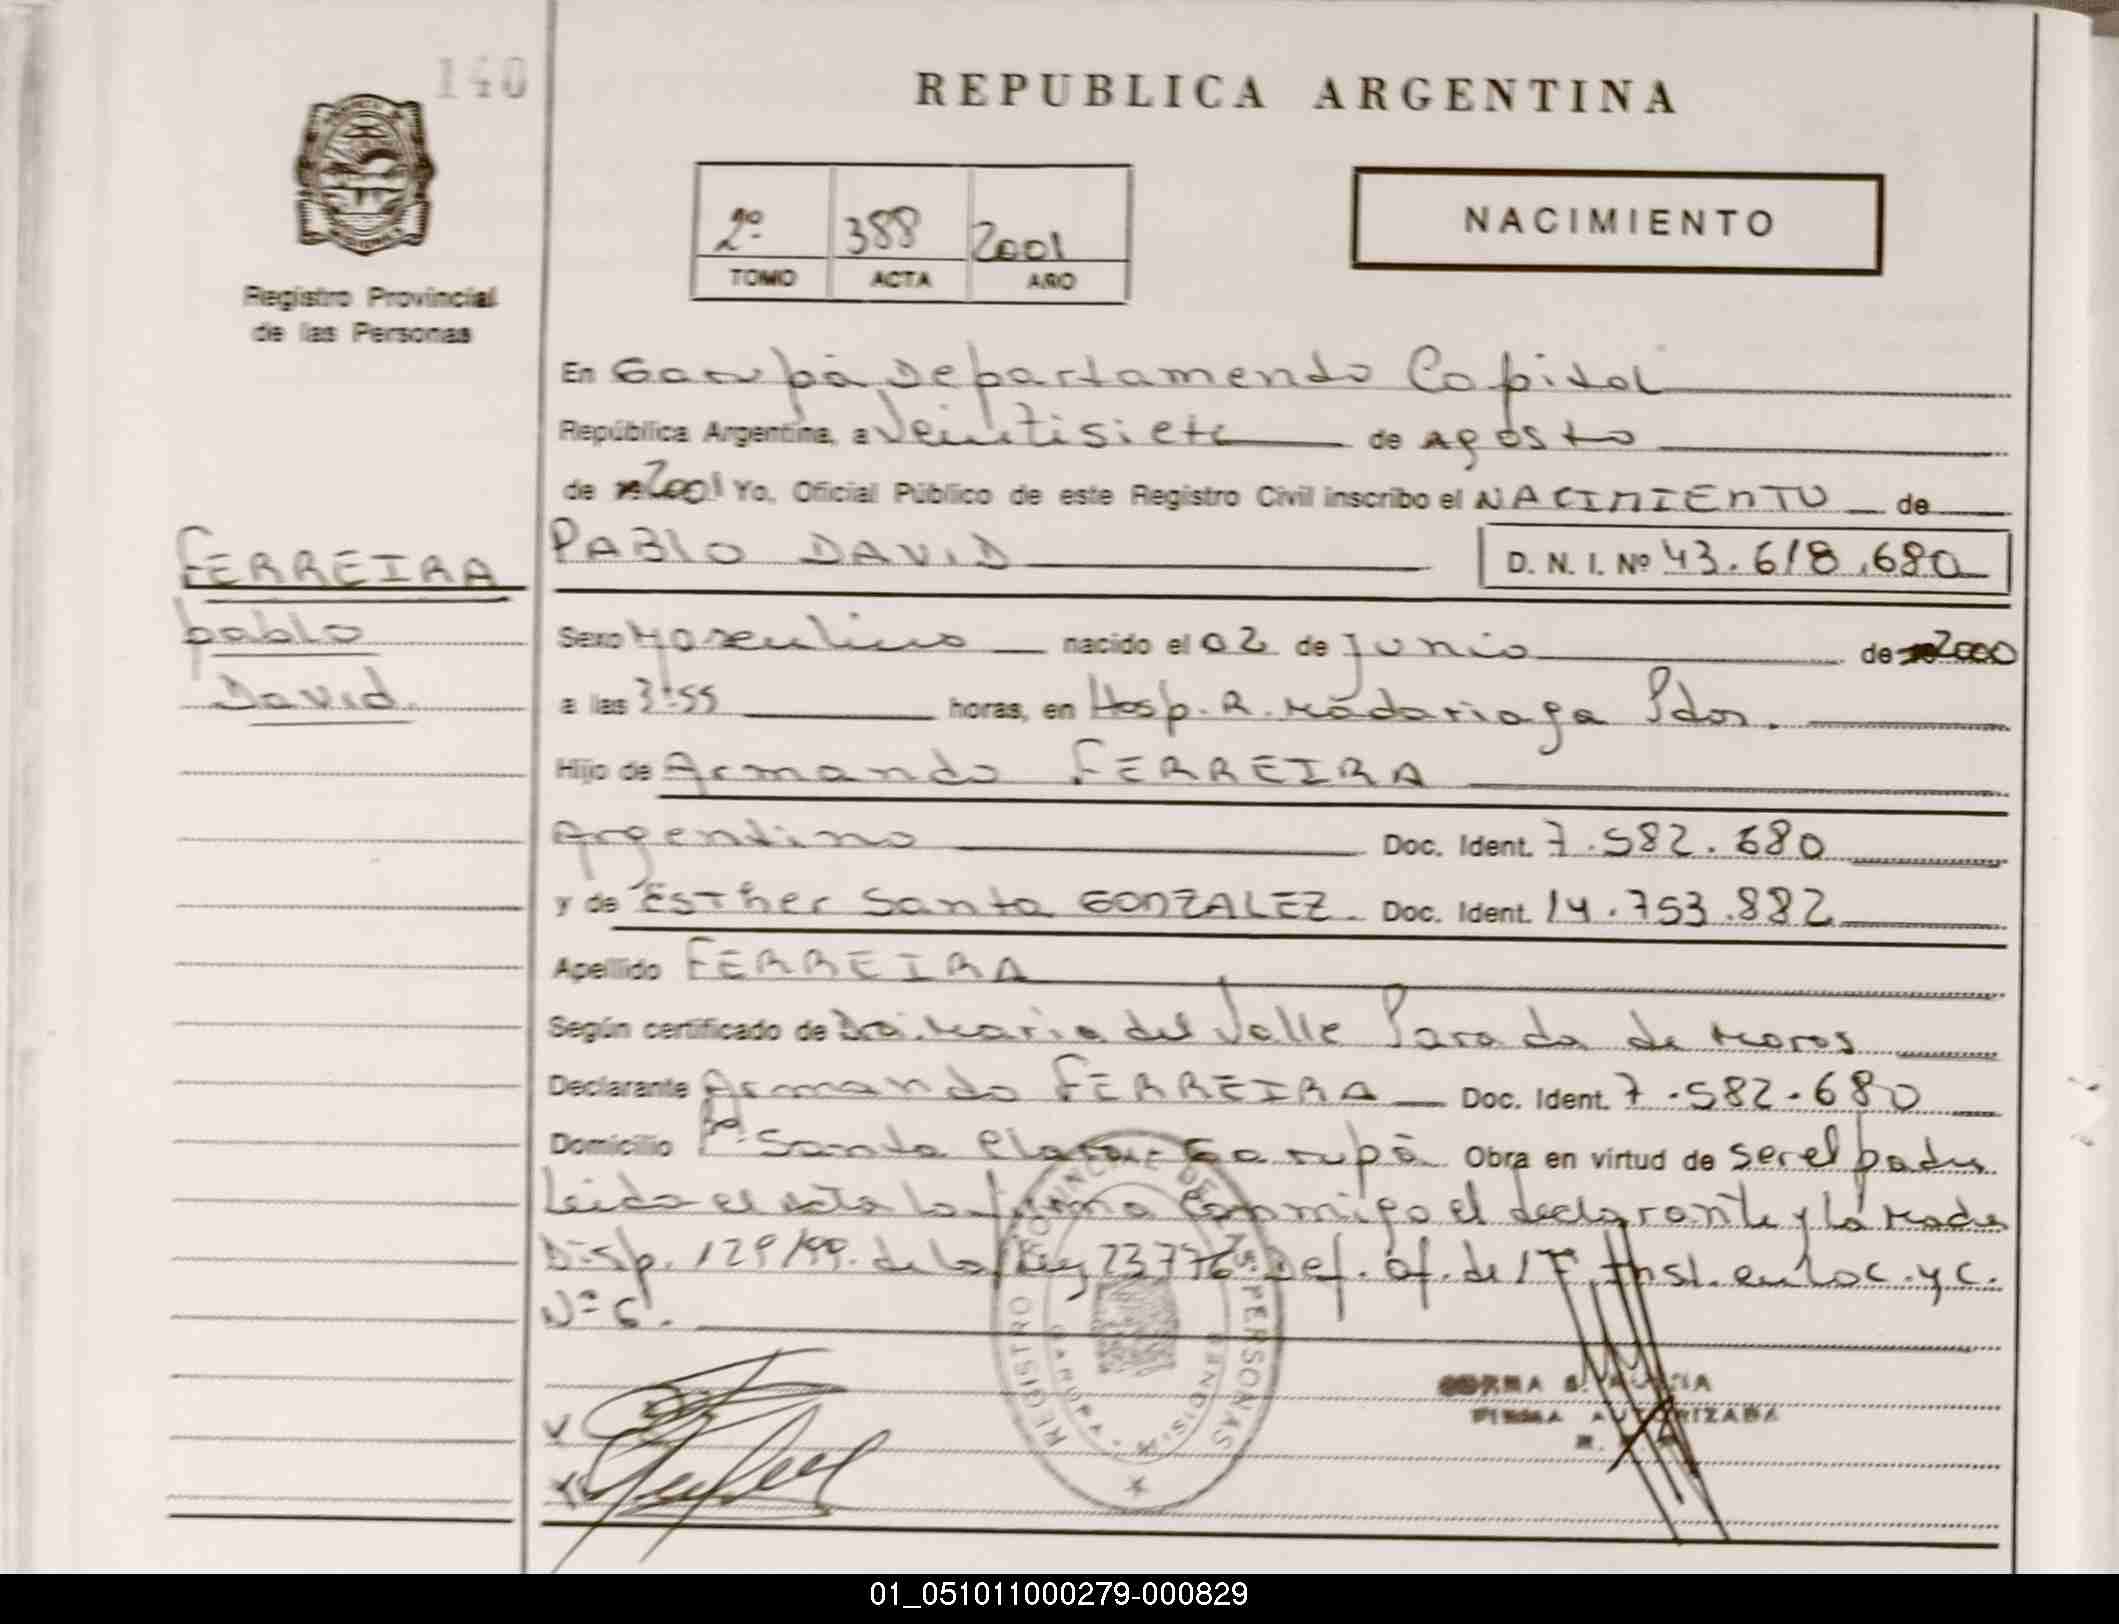 140
REPUBLICA ARGENTINA
2º 388 2001
TOMO ACTA AÑO
NACIMIENTO
Registro Provincial
de las Personas
En Garupá Departamento Capital
República Argentina, a Veintisiete de Agosto
de 2001 Yo, Oficial Público de este Registro Civil inscribo el NACIMIENTO de
FERREIRA
Pablo
David
PABLO DAVID D. N. I. Nº 43.618.680
Sexo Masculino nacido el 02 de Junio de 2000
a las 3:55 horas, en Hosp. R. Madariaga Pdas.
Hijo de Armando FERREIRA
Argentino Doc. Ident. 7.582.680
y de Esther Santa GONZALEZ. Doc. Ident. 14.753.882
Apellido FERREIRA
Según certificado de Dra. Maria del Valle Parada de Moros
Declarante Armando FERREIRA Doc. Ident. 7.582.680
Domicilio Bº. Santa Clara Garupá Obra en virtud de ser el padre
Leida el acta la firma conmigo el declarante y la Madre
Disp. 129/99. de la Ley 23776. Def. of. de 1ª Inst. en Loc. y C.
Nº 6.
REGISTRO PROVINCIAL DE LAS PERSONAS
GARUPA
FIRMA AUTORIZADA
01_051011000279-000829